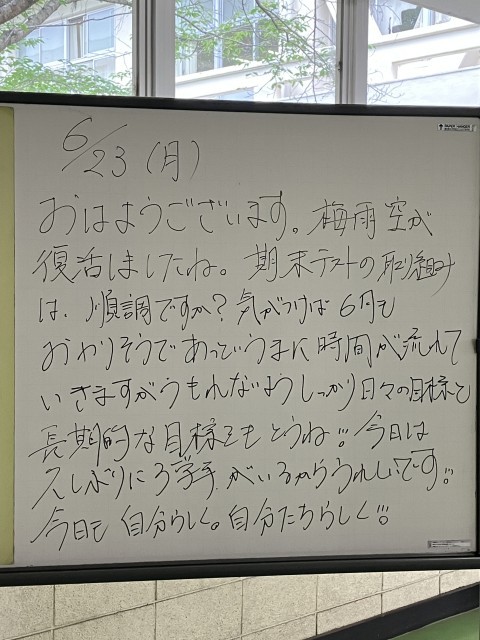 6/23(月)
おはようございます。梅雨空が
復活しましたね。期末テストの取り組み
は、順調ですか?気がつけば6月も
おわりそうであっというまに時間が流れて
いきますがうもれないようしっかり日々の目標と
長期的な目標をもとうね!!今日は
久しぶりに3学年がいるからうれしいです!!
今日も自分らしく。自分たちらしく!!